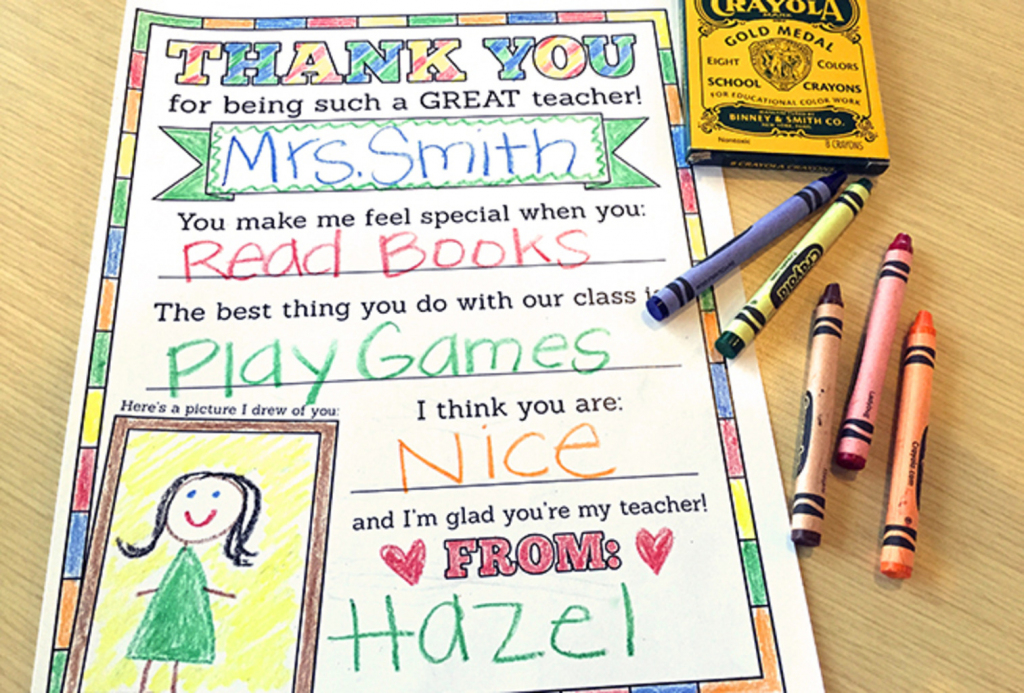 THANK YOU
for being such a GREAT teacher!
Mrs. Smith
You make me feel special when you:
Read Books
The best thing you do with our class i
Play Games
Here's a picture I drew of you:
I think you are:
Nice
and I'm glad you're my teacher!
FROM:
Hazel
CRAYOLA
GOLD MEDAL
EIGHT COLORS
SCHOOL CRAYONS
FOR EDUCATIONAL COLOR WORK
BINNEY & SMITH CO.
NEW YORK
Nontoxic 8 CRAYONS
8 CRAYOLA CRAYONS
Crayola
Crayola.com